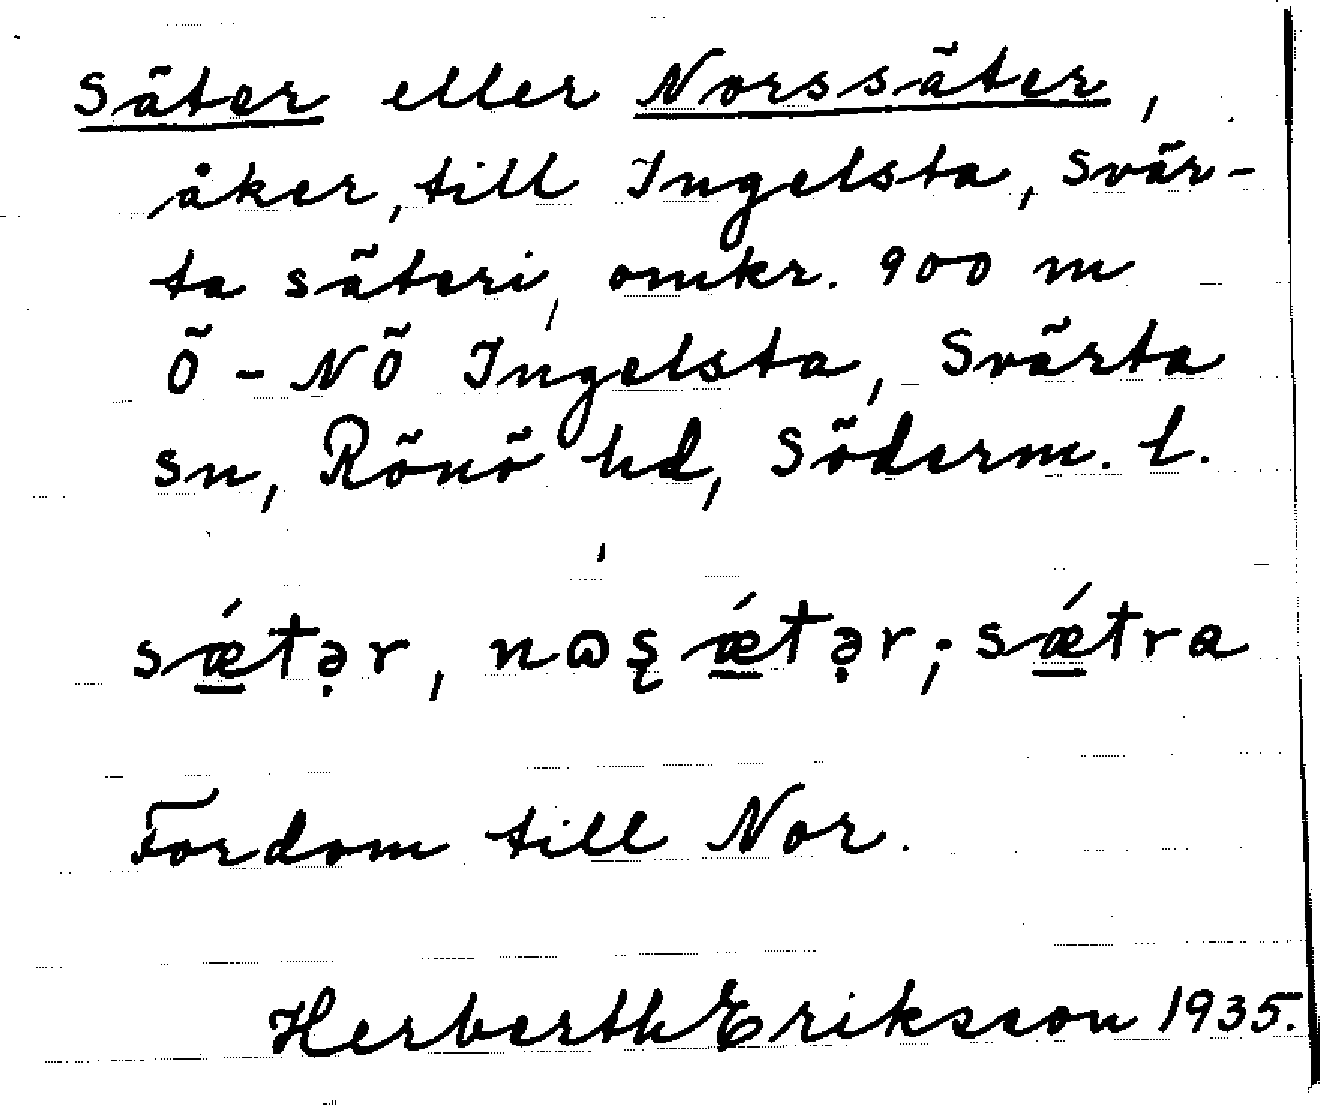 Säter eller Norssäter,
åker, till Ingelsta, Svär-
ta säteri, omkr. 900 m
Ö - NÖ Ingelsta, Svärta
sn, Rönö hd, Söderm. l.
sǽ̲tə̣r, nɷʂǽ̲tə̣r; sǽ̲tra
Fordom till Nor.
Herberth Eriksson 1935.